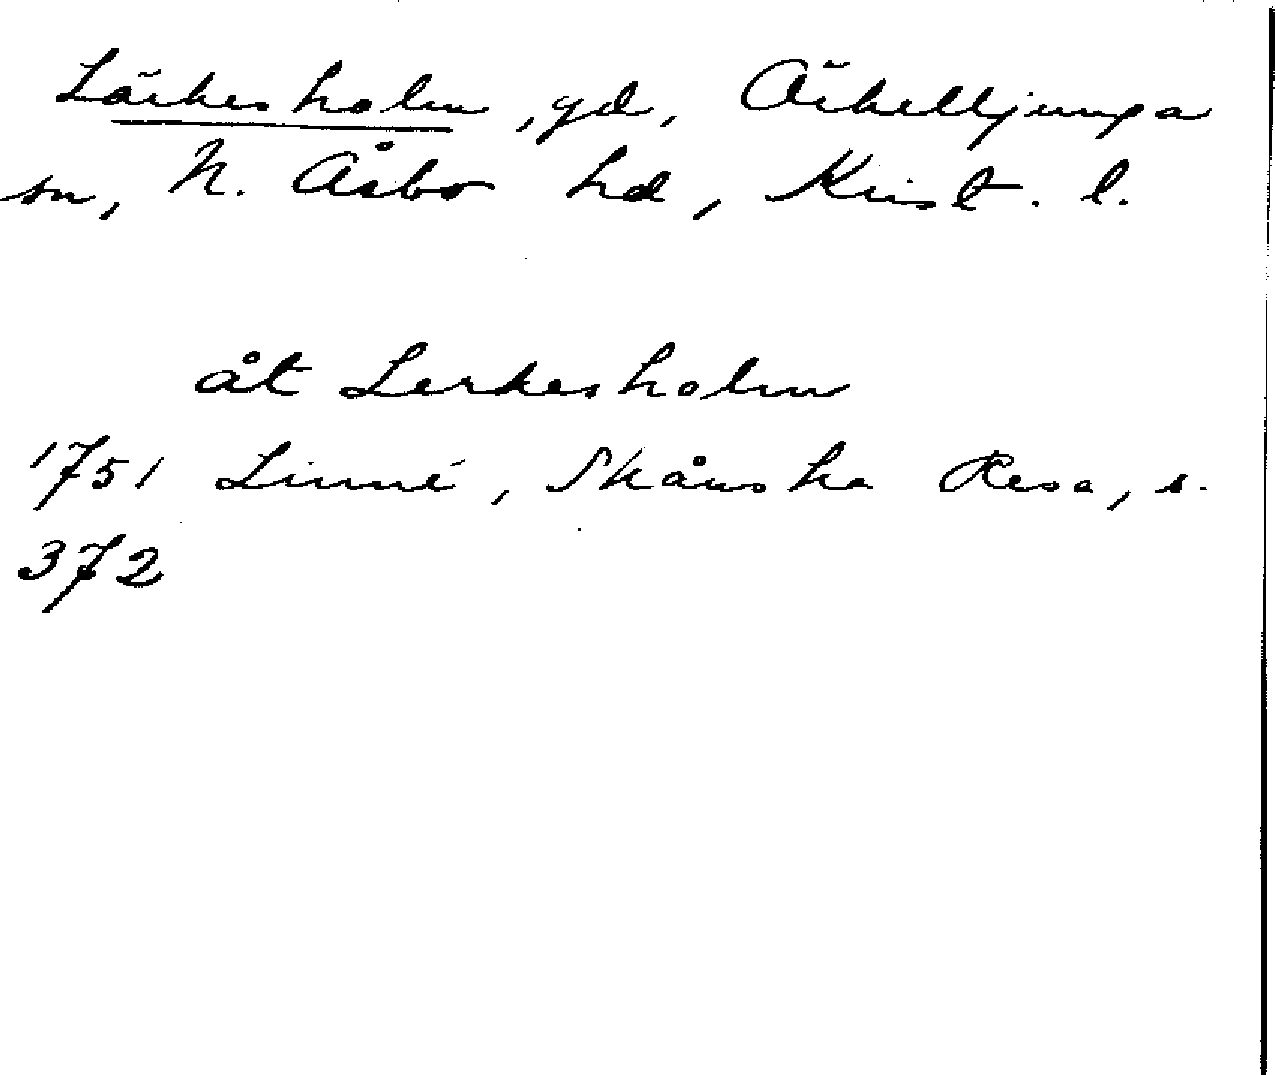 Lärkesholm, gd, Örkelljunga
sn, N. Åsbo hd, Krist. l.
åt Lerkesholm
1751 Linné, Skånska Resa, s.
372